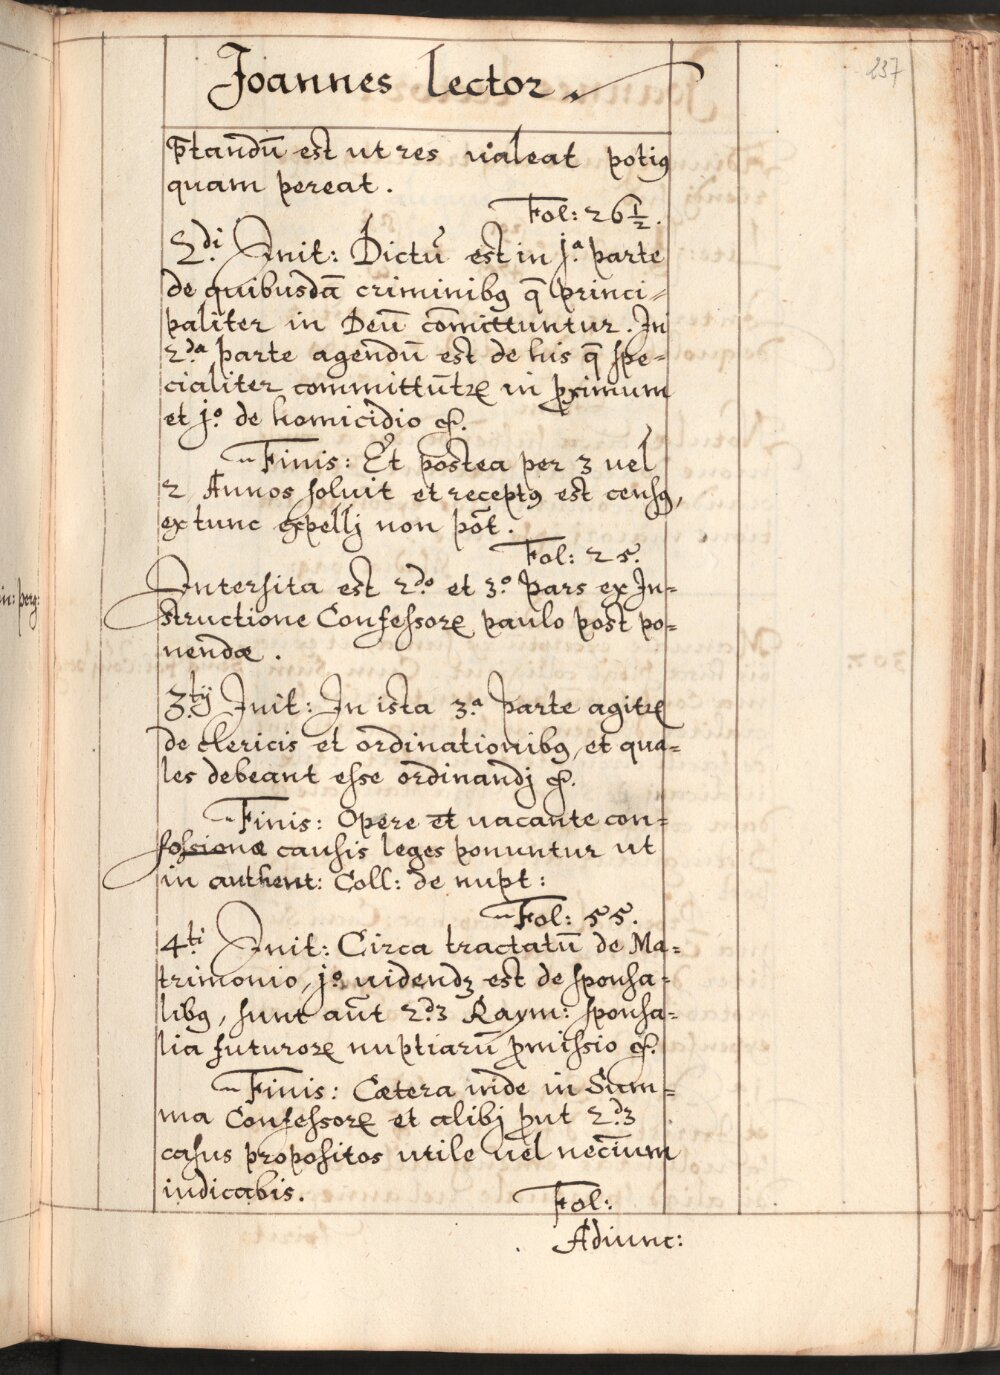 237
Joannes lector.
p̄tandū est ut res ualeat potiꝰ
quam pereat.
Fol: 26 1/2.
2di Init: Dictū est in j.a parte
de quibusdā criminibꝰ q̄ princi=
paliter in Deū com̄ittuntur. In
2da parte agendū est de his q̄ spe=
cialiter committūtꝛ in ꝓximum
et jo. de homicidio &.
Finis: Et postea per 3 uel
2 Annos soluit et receptꝰ est censꝰ,
ex tunc expellj non pōt.
Fol: 25.
Intersita est 2do et 3o pars ex In=
structione Confessorꝝ paulo post po=
nendæ.
3tij Init: In ista 3a parte agitꝛ
de clericis et ordinationibꝰ, et qua=
les debeant esse ordinandj &.
Finis: Opere et uacante con=
causis leges ponuntur ut
in authent: Coll: de nupt:
Fol: 55.
4ti Init: Circa tractatū de Ma=
trimonio, jo. uidendꝫ est de sponsa=
libꝰ, sunt aūt 2dꝫ Raym: sponsa=
lia futurorꝝ nuptiarū ꝓmissio &.
Finis: Cætera inde in Sum=
ma Confessorꝝ et alibj ꝓut 2dꝫ
casus propositos utile uel nec̄ium
indicabis.
Fol:
Adiunc: